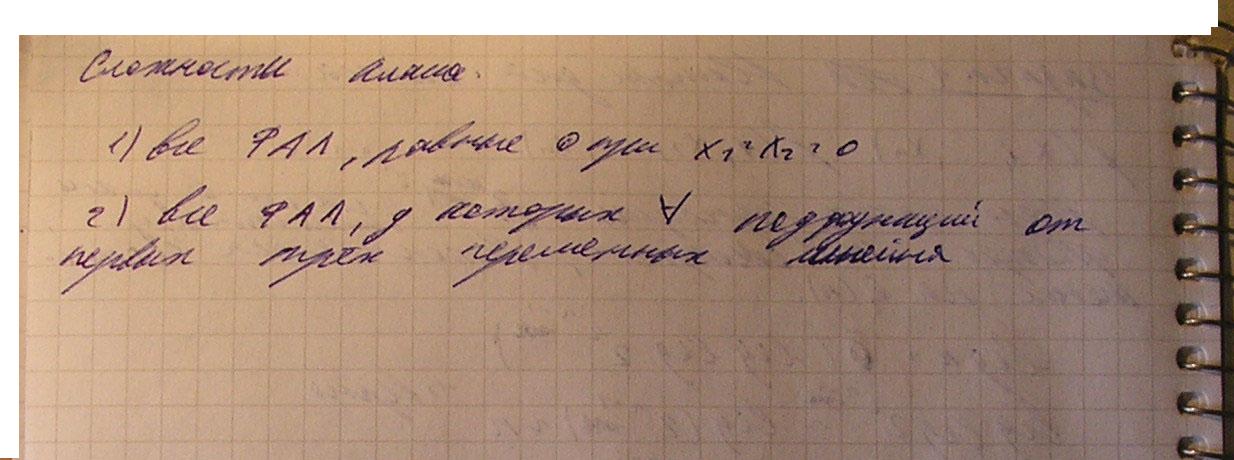 Сложности класса.
1) все ФАЛ, равные 0 при x₁=x₂=0
2) все ФАЛ, у которых ∀ подфункций от
первых трёх переменных линейна